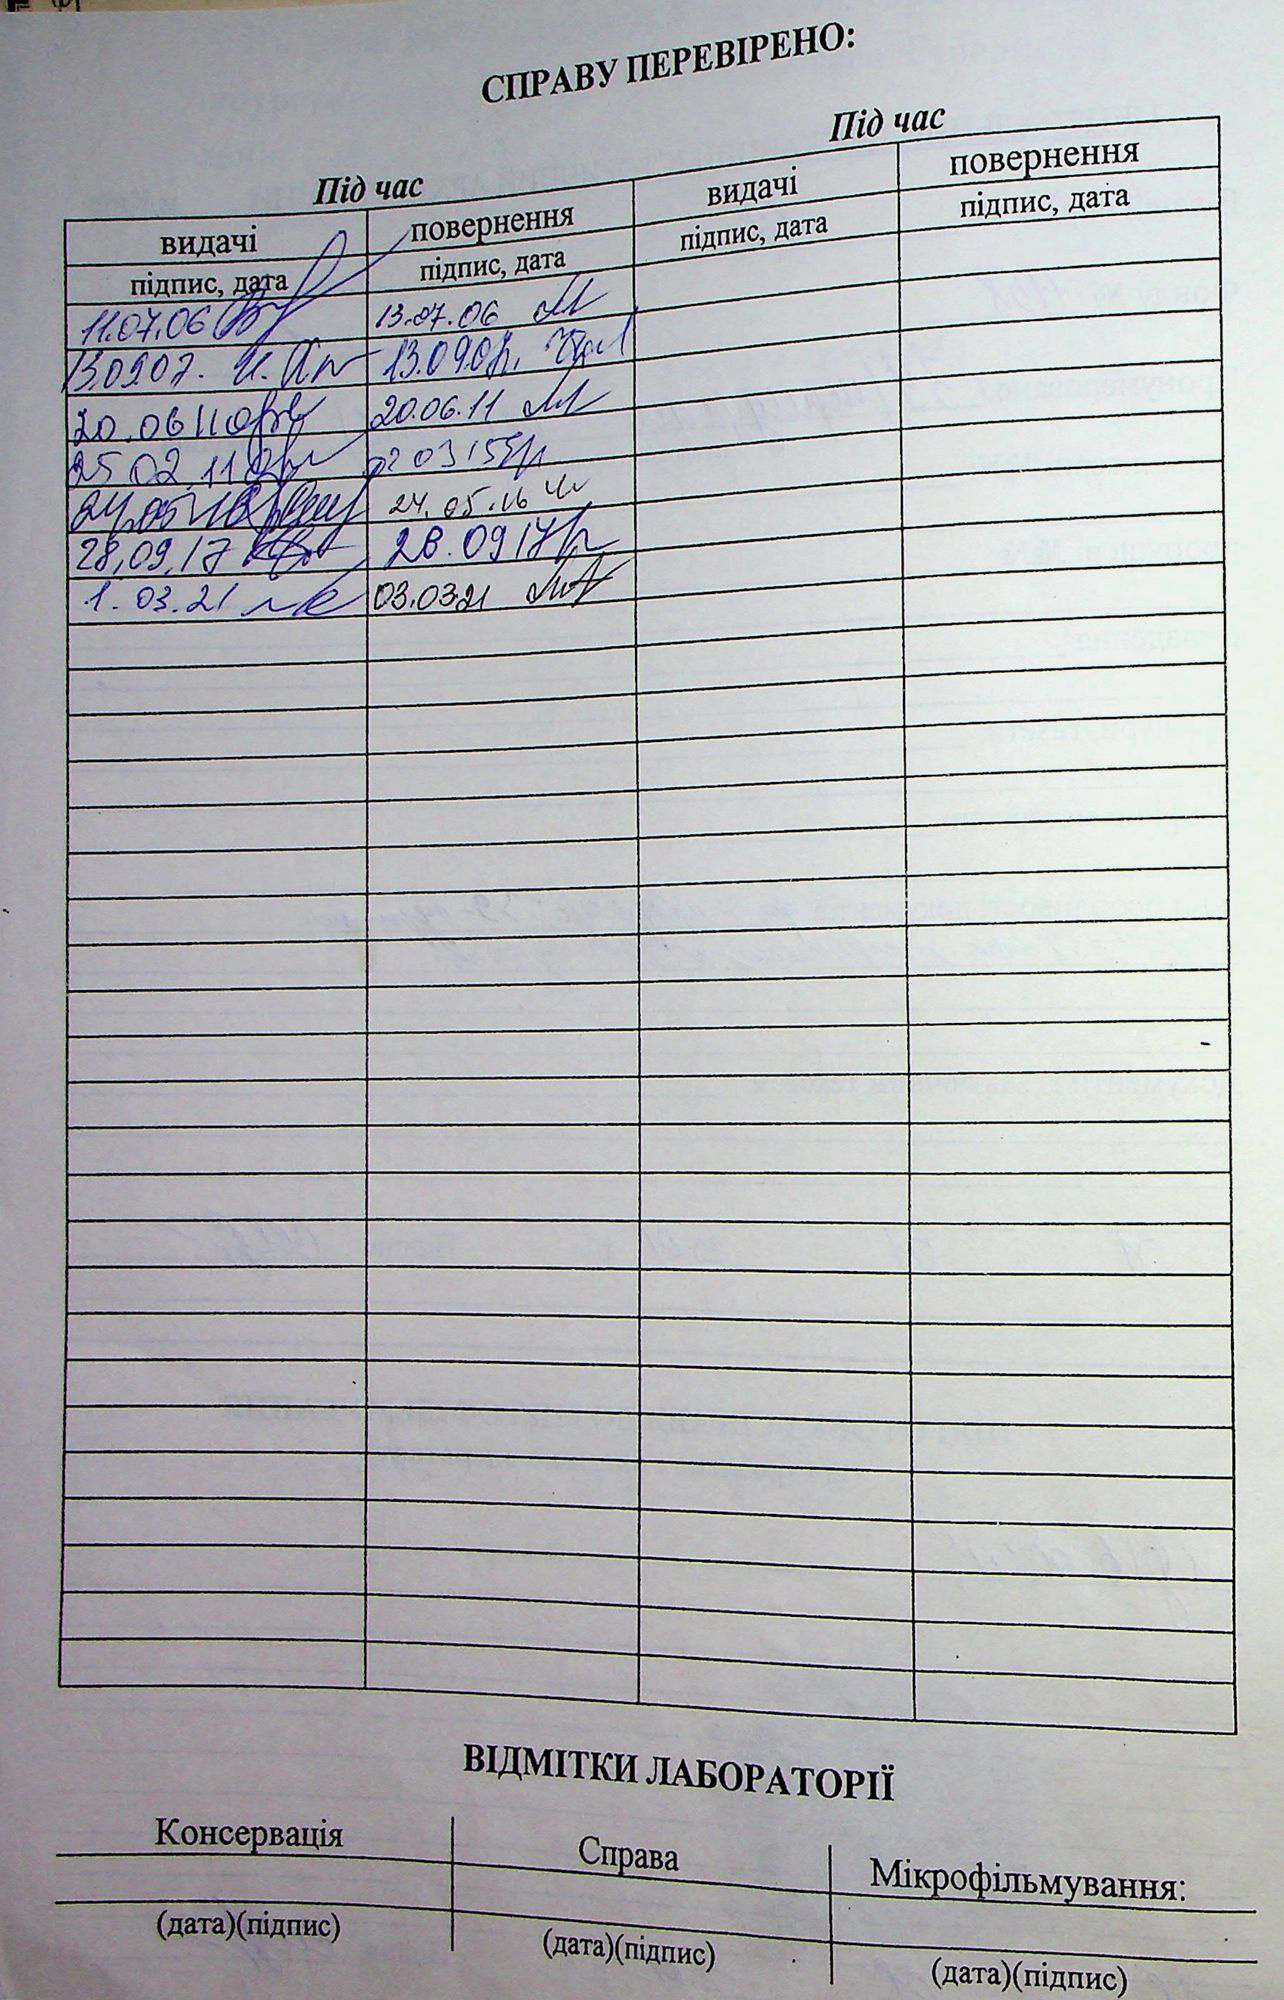 СПРАВУ ПЕРЕВІРЕНО:
Під час Під час
видачі повернення видачі повернення
підпис, дата підпис, дата підпис, дата підпис, дата
11.07.06 13.07.06
13.09.07. 13.09.07.
20.06 11 20.06.11
25 02. 11 02 03 15
24.05.16 24.05.16
28.09.17 28.09 17
1. 03.21 03.0321
ВІДМІТКИ ЛАБОРАТОРІЇ
Консервація Справа Мікрофільмування:
(дата)(підпис) (дата)(підпис) (дата)(підпис)